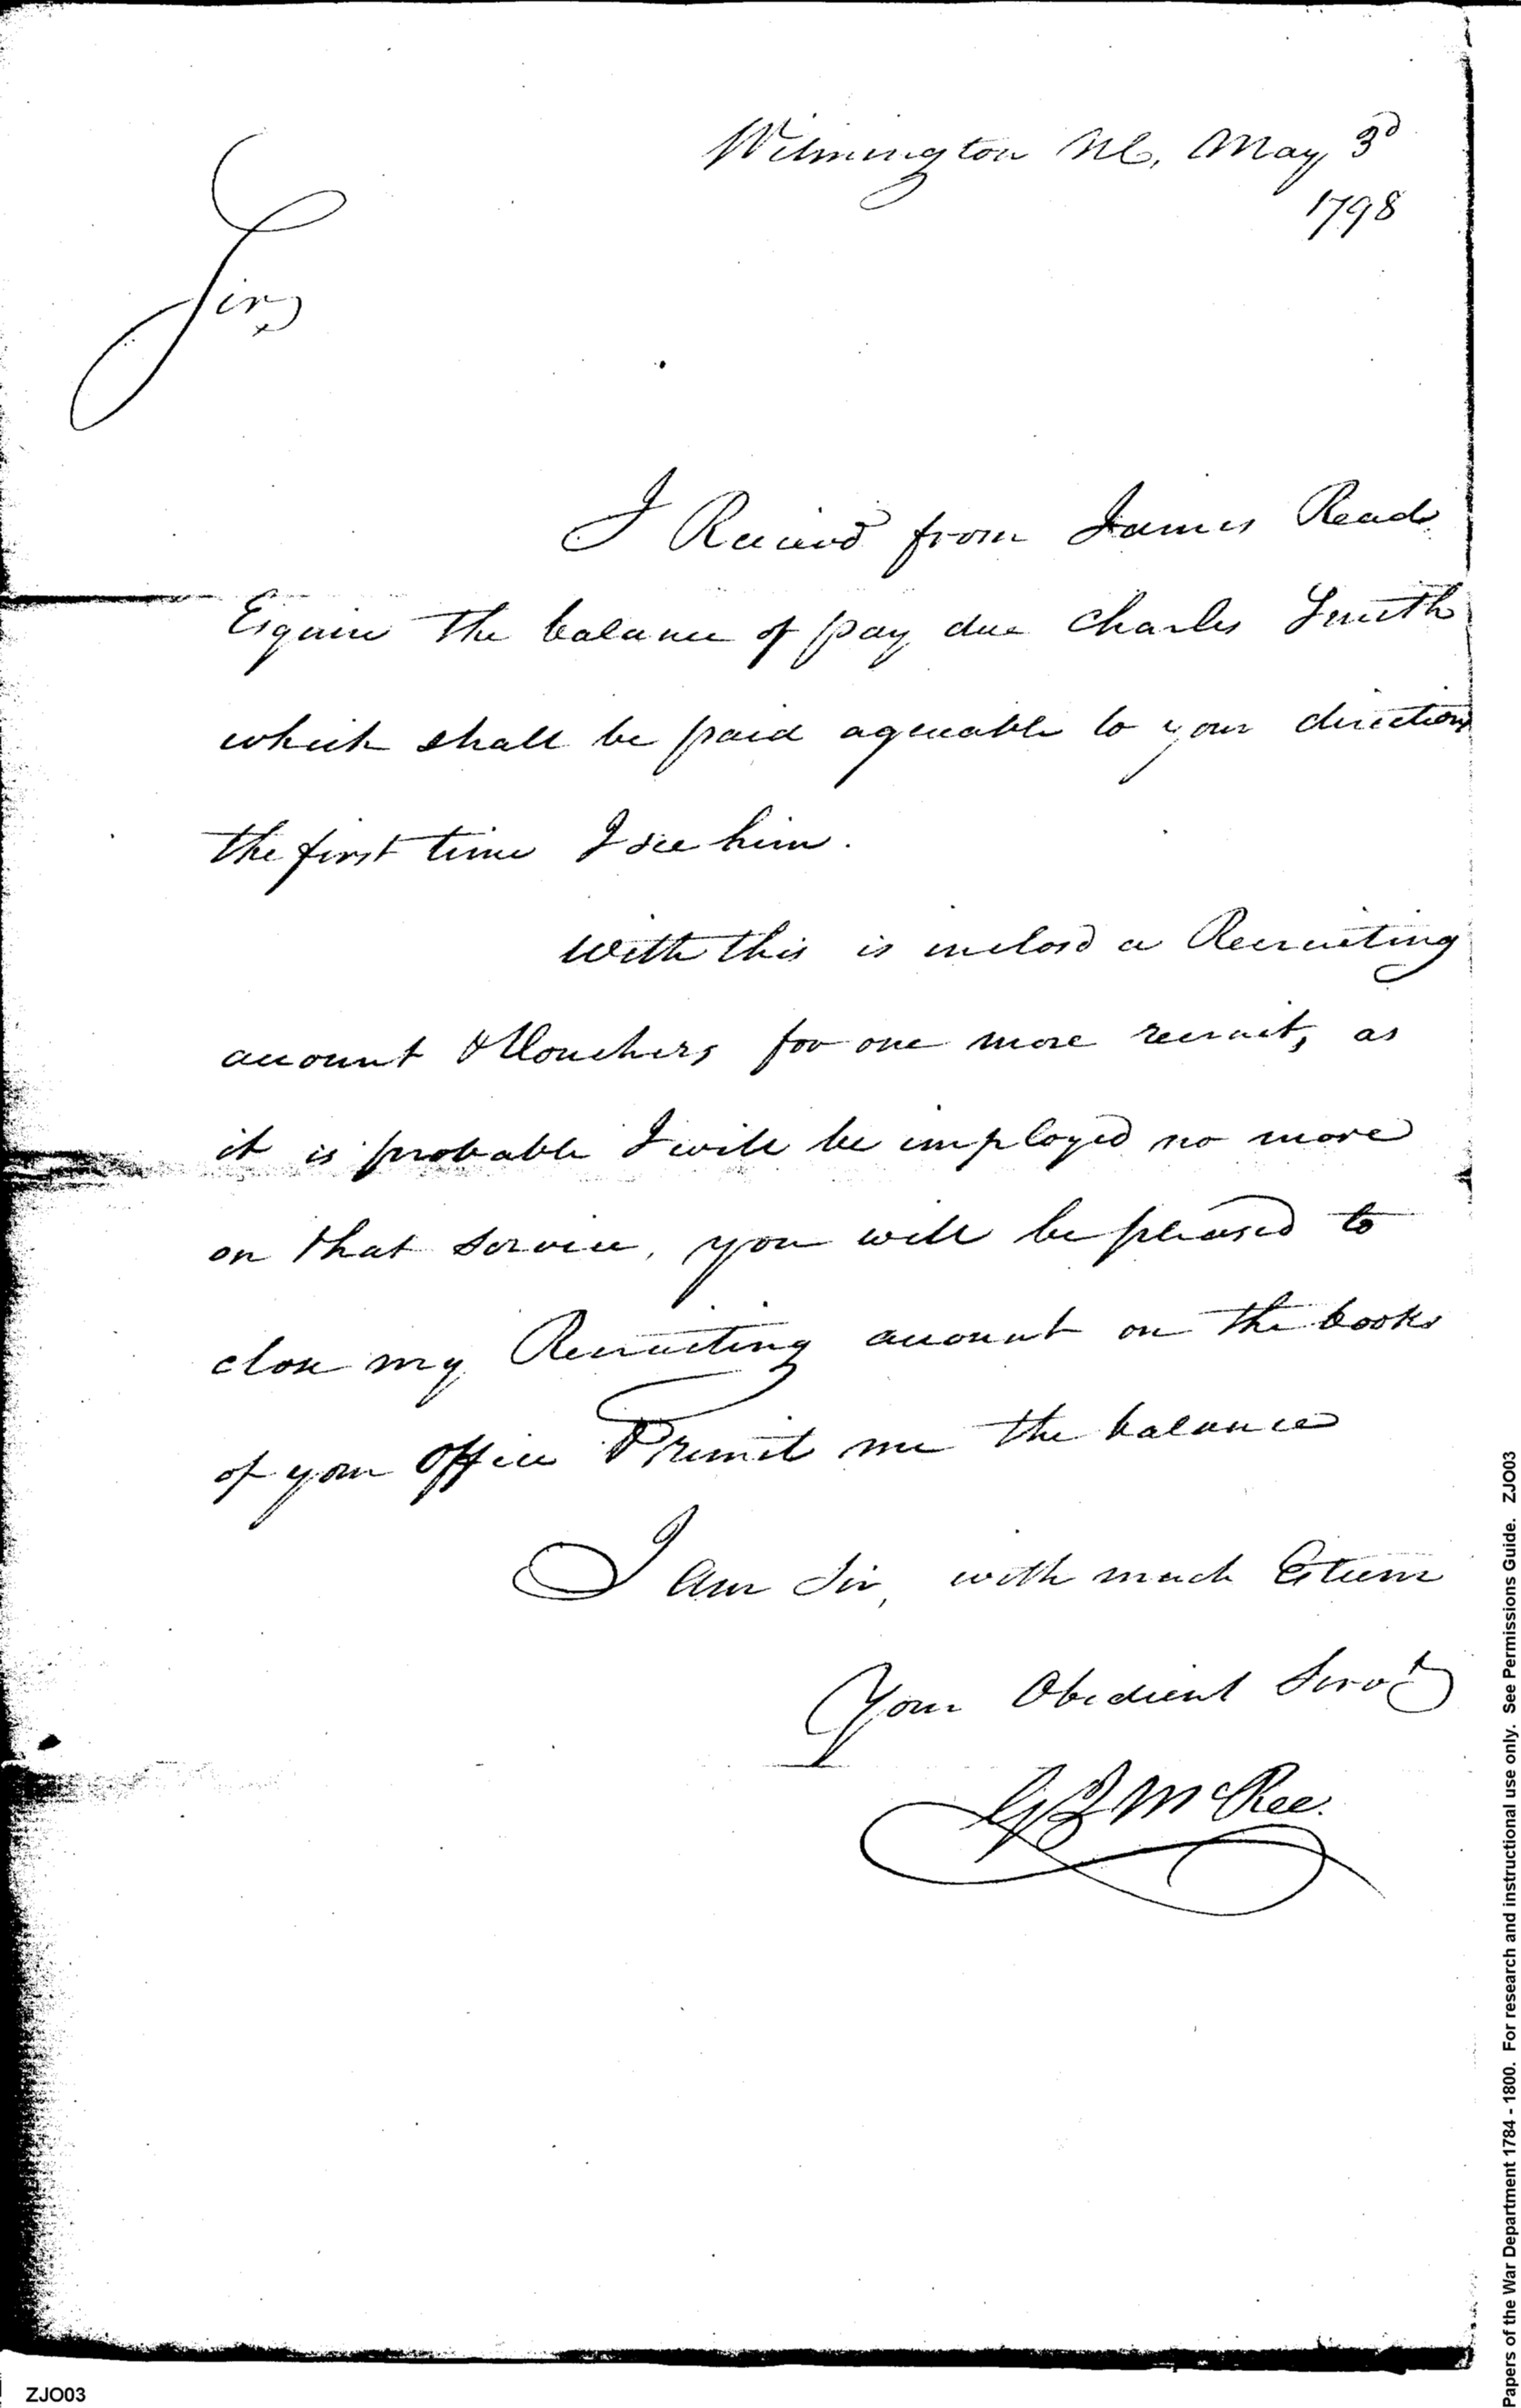 Wilmington NC, May 3d
1798
Sir,
I Receivd from James Read
Esquire the balance of pay due Charles Smith
which shall be paid agreeable to your directions
the first time I see him.
With this is inclosd a Recruiting
account & Vouchers for one more recruit, as
it is probable I will be imployed no more
on that service, you will be pleased to
close my Recruiting account on the books
of your Office & remit me the balance
I am Sir, with much Esteem
Your Obedient Servt
G J McRee.
ZJO03
Papers of the War Department 1784 - 1800. For research and instructional use only. See Permissions Guide. ZJO03